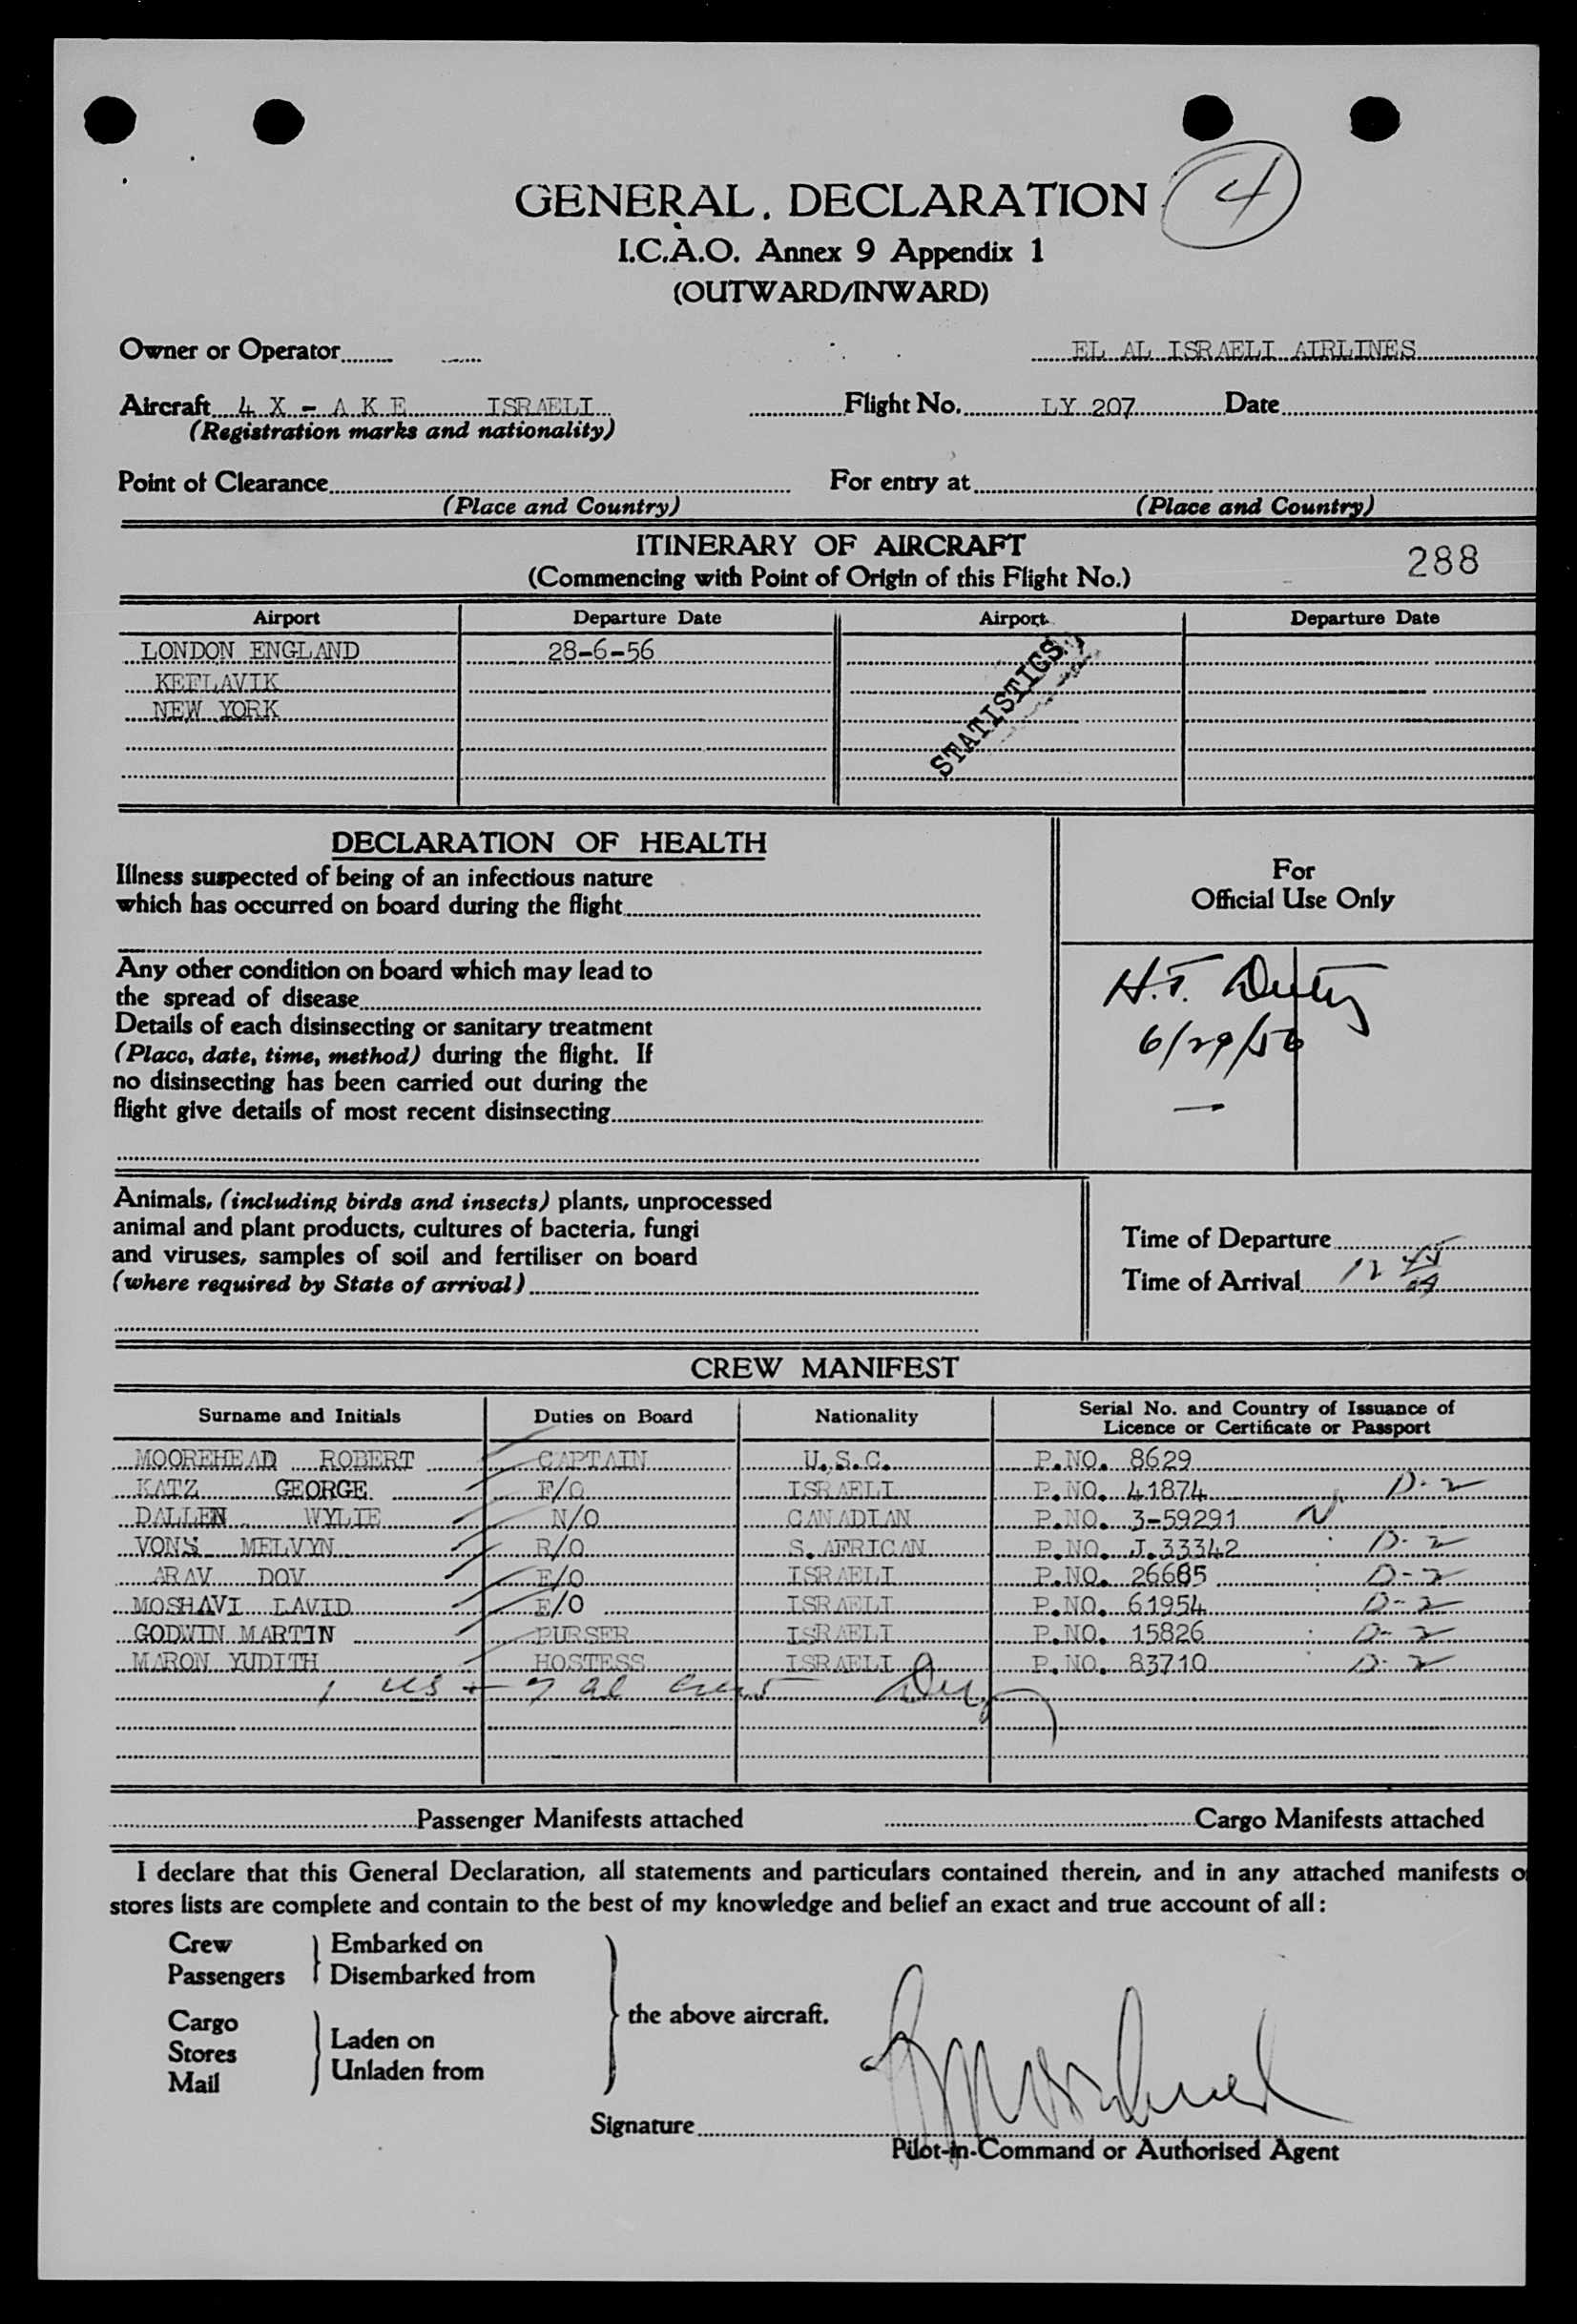 4
GENERAL DECLARATION
I.C.A.O. Annex 9 Appendix 1
(OUTWARD/INWARD)
Owner or Operator EL AL ISRAELI AIRLINES
Aircraft 4 X - A K E ISRAELI Flight No. LY 207 Date
(Registration marks and nationality)
Point of Clearance For entry at
(Place and Country) (Place and Country)
ITINERARY OF AIRCRAFT
(Commencing with Point of Origin of this Flight No.) 288
Airport Departure Date Airport Departure Date
LONDON ENGLAND 28-6-56
KEFLAVIK
NEW YORK
STATISTICS
DECLARATION OF HEALTH
Illness suspected of being of an infectious nature
which has occurred on board during the flight
Any other condition on board which may lead to
the spread of disease
Details of each disinsecting or sanitary treatment
(Place, date, time, method) during the flight. If
no disinsecting has been carried out during the
flight give details of most recent disinsecting
For
Official Use Only
H.T.
6/29/56
Animals, (including birds and insects) plants, unprocessed
animal and plant products, cultures of bacteria, fungi
and viruses, samples of soil and fertiliser on board
(where required by State of arrival)
Time of Departure
Time of Arrival 12
CREW MANIFEST
Surname and Initials Duties on Board Nationality Serial No. and Country of Issuance of
Licence or Certificate or Passport
MOOREHEAD ROBERT CAPTAIN U.S.C. P.NO. 8629
KATZ GEORGE F/O ISRAELI P.NO. 41874 D-2
DALLEN WYLIE N/O CANADIAN P.NO. 3-59291
VONS MELVYN R/O S. AFRICAN P.NO. J.33342 D-2
ARAV DOV E/O ISRAELI P.NO. 26685 D-2
MOSHAVI DAVID E/O ISRAELI P.NO. 61954 D-2
GODWIN MARTIN PURSER ISRAELI P.NO. 15826 D-2
MARON YUDITH HOSTESS ISRAELI P.NO. 83710 D-2
1 US + 7 al crew
Passenger Manifests attached Cargo Manifests attached
I declare that this General Declaration, all statements and particulars contained therein, and in any attached manifests o
stores lists are complete and contain to the best of my knowledge and belief an exact and true account of all:
Crew Embarked on
Passengers Disembarked from
the above aircraft.
Cargo
Stores Laden on
Mail Unladen from
Signature
Pilot-in-Command or Authorised Agent